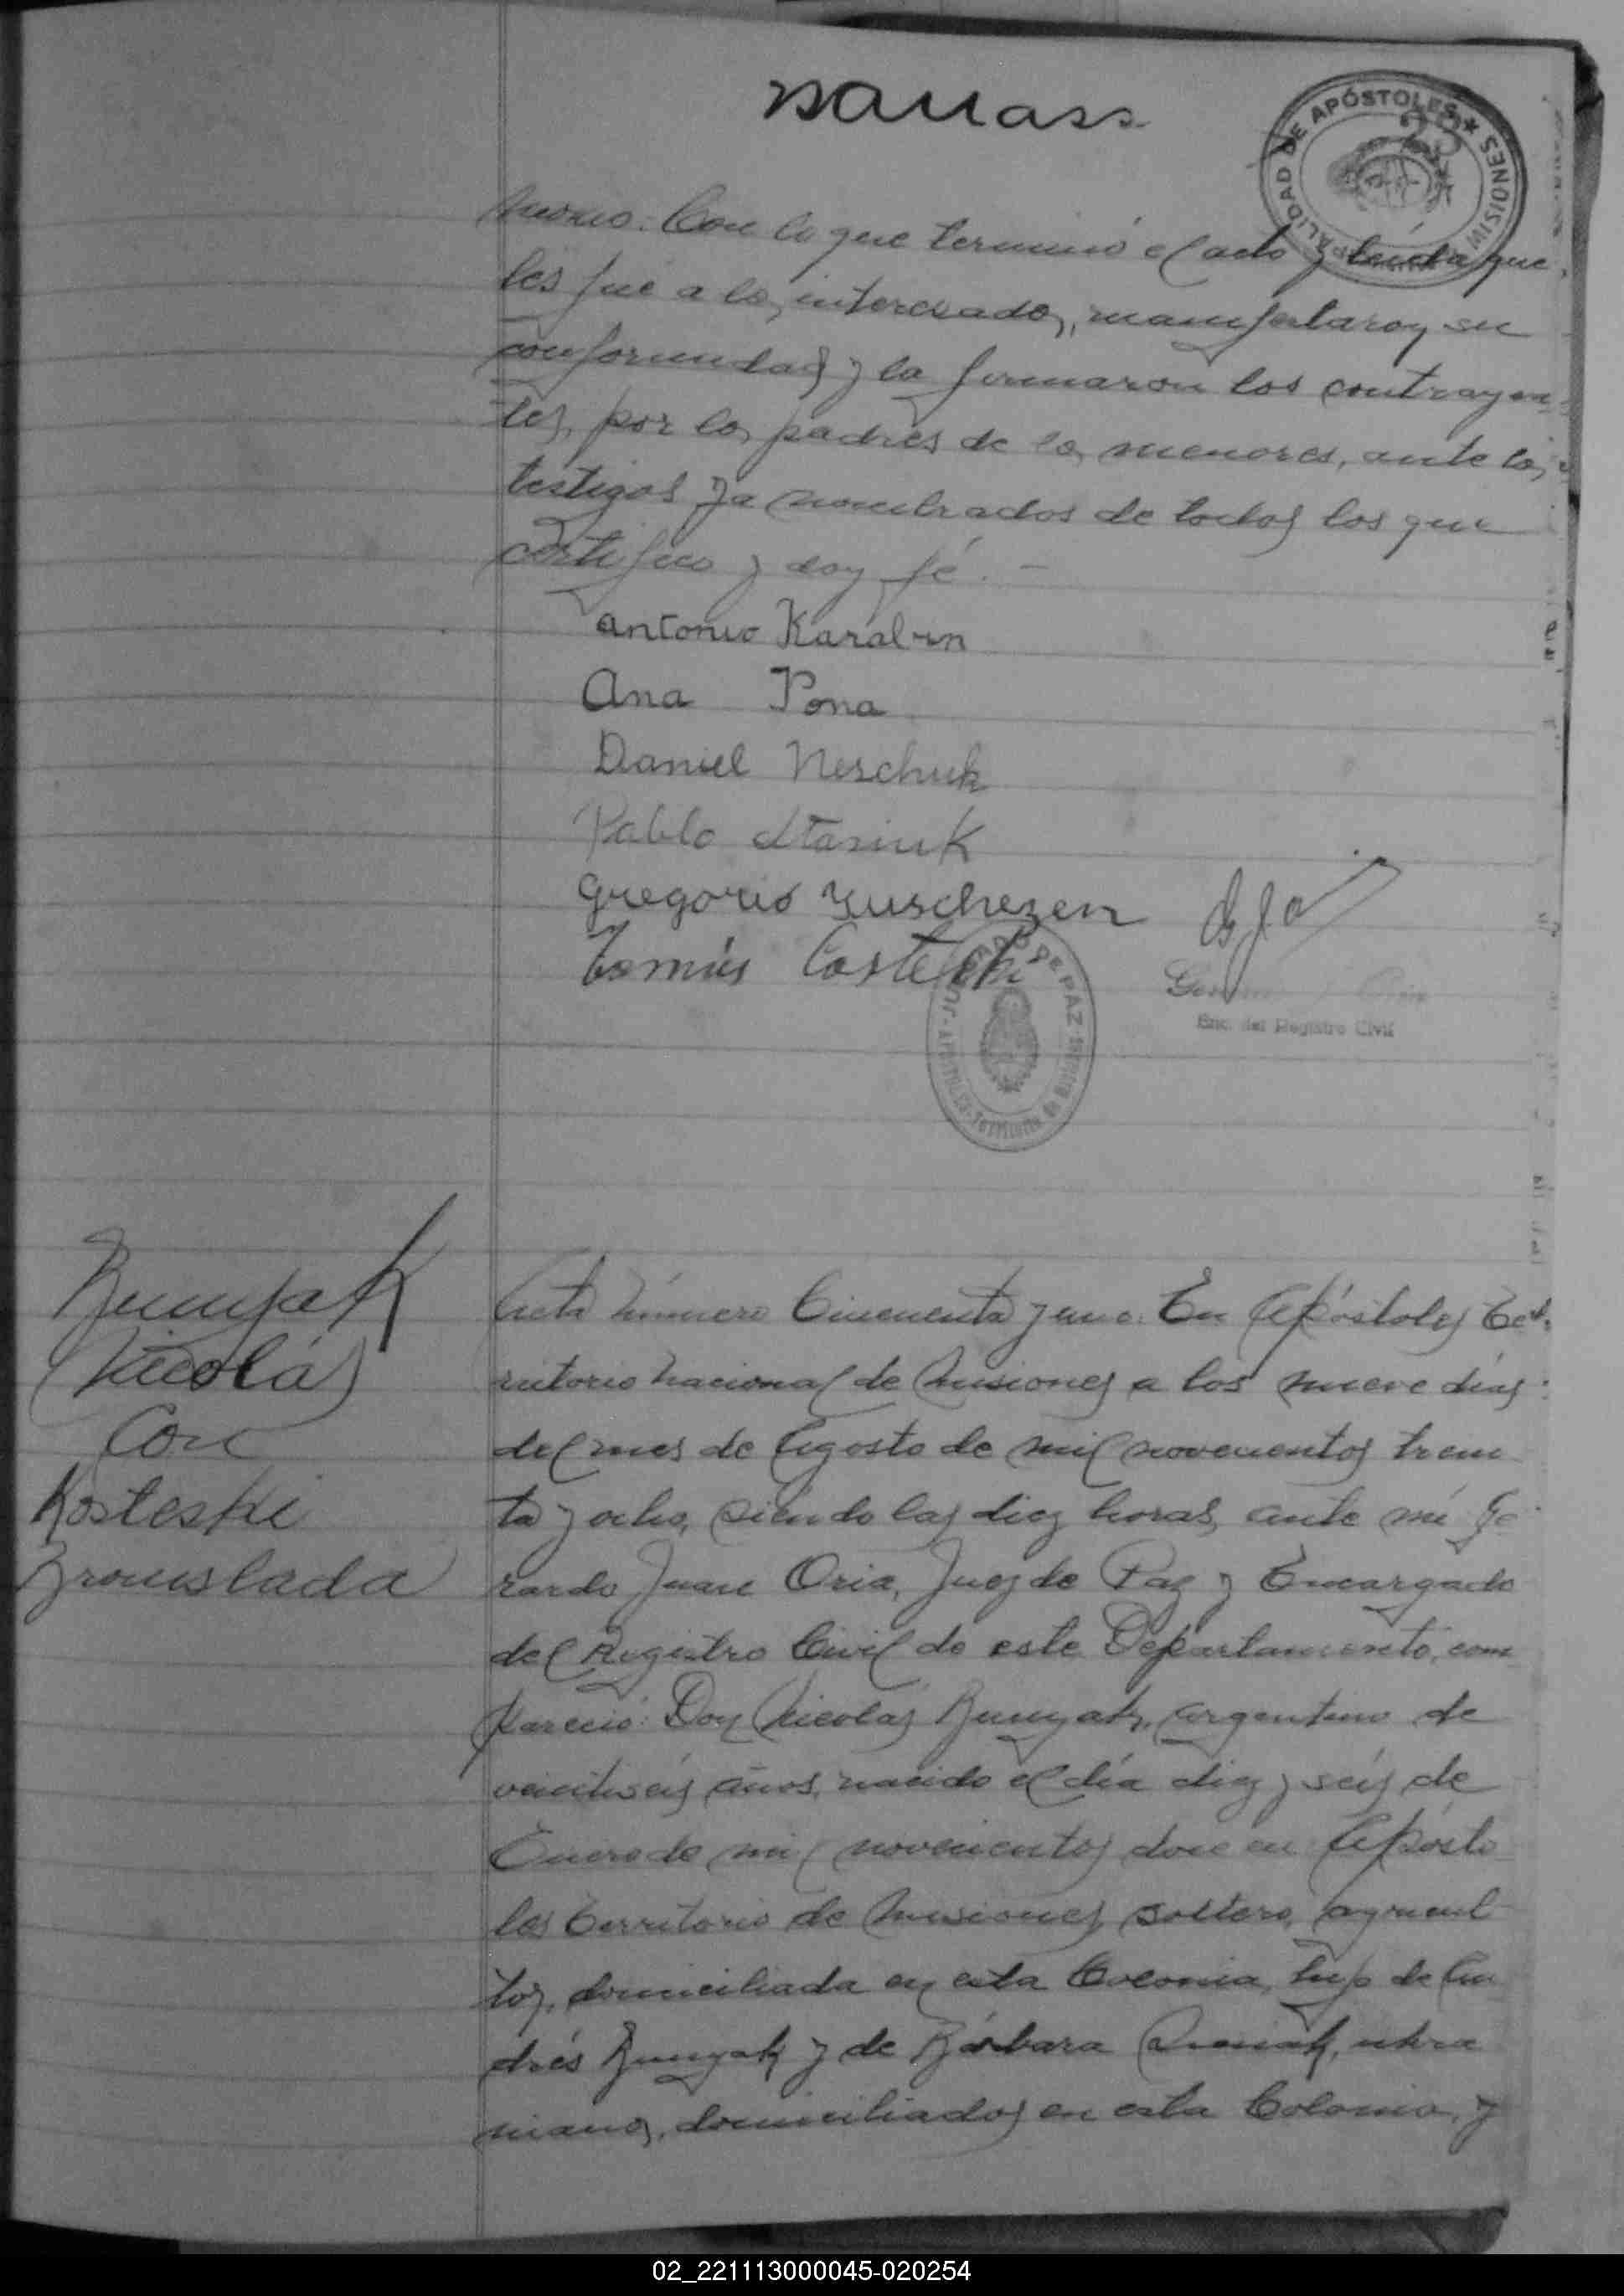 MUNICIPALIDAD DE APÓSTOLES ★ MISIONES
23
Con lo que terminó el acto y leida que
les fué a los interesados, manifestaron su
conformidad y la firmaron los contrayen
tes, por los padres de los menores, ante los
testigos ya nombrados de todos los que
certifico y doy fé. -
antonio Karabin
Ana Pona
Daniel Neschuk
Pablo Stasiuk
Gregorio
Tomás Costeski
JUZGADO DE PAZ
APOSTOLES - Territorio de Misiones
Enc. del Registro Civil
Bunyak
Nicolás
Con
Kosteski
Bronislada
Acta número Cincuenta y uno. En Apóstoles Te-
rritorio Nacional de Misiones a los nueve dias
del mes de Agosto de mil novecientos trein
ta y ocho, siendo las diez horas, ante mí Ge
rardo Juan Oria, Juez de Paz y Encargado
del Registro Civil de este Departamento, com
pareció: Don Nicolás Bunyak, argentino de
veintiseis años, nacido el día diez y seis de
Enero de mil novecientos doce en Apósto
les Territorio de Misiones, soltero, agricul
tor, domiciliada en esta Colonia, hijo de An
drés Bunyak y de Bárbara ucra
nianos, domiciliados en esta Colonia, y
02_221113000045-020254